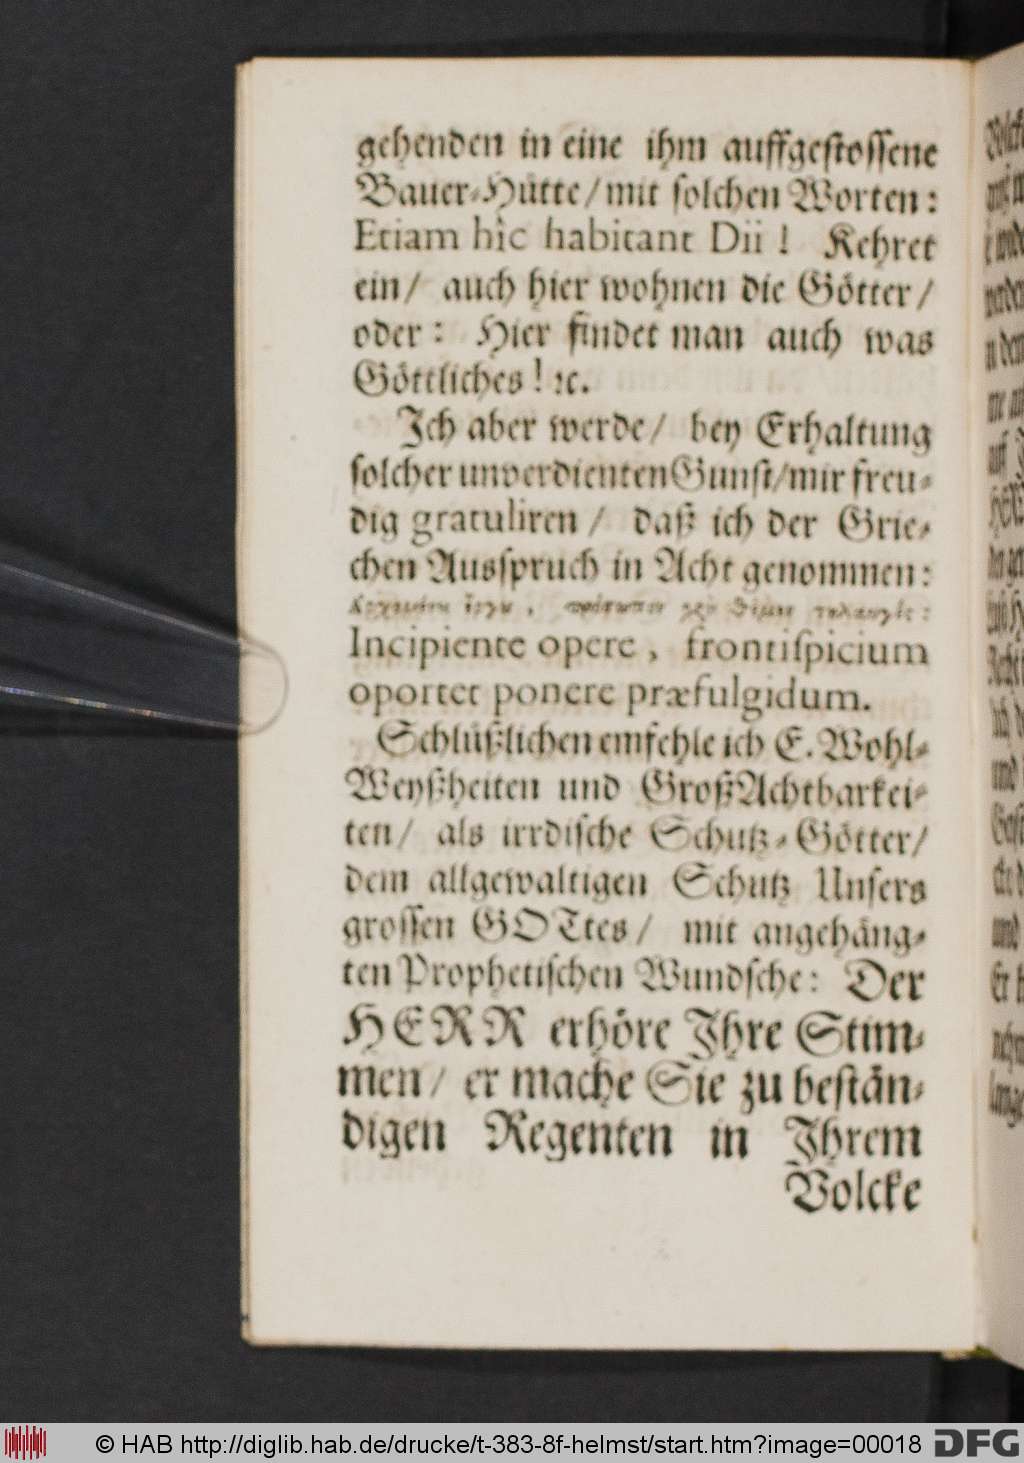 gehenden in eine ihm auffgestossene
Bauer-Hütte/mit solchen Worten:
Etiam hîc habitant Dii! Kehret
ein/ auch hier wohnen die Götter/
oder: Hier findet man auch was
Göttliches! ꝛc.
Ich aber werde/ bey Erhaltung
solcher unverdienten Gunst/mir freu-
dig gratuliren/ daß ich der Grie-
chen Ausspruch in Acht genommen:
πρόσωπον τηλαυγές:
Incipiente opere, frontiſpicium
oportet ponere præfulgidum.
Schlüßlichen empfehle ich E. Wohl-
Weyßheiten und GroßAchtbarkei-
ten/ als irrdische Schutz-Götter/
dem allgewaltigen Schutz Unsers
grossen GOTtes/ mit angehäng-
ten Prophetischen Wundsche: Der
HERR erhöre Ihre Stim-
men/ er mache Sie zu bestän-
digen Regenten in Ihrem
Volcke
© HAB http://diglib.hab.de/drucke/t-383-8f-helmst/start.htm?image=00018
DFG